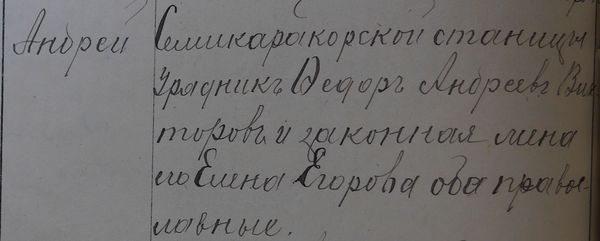 Андрей
Семикаракорской станицы
Урядникъ Ѳедоръ Андреевъ Вик
торовъ и законная жена
его Елена Егорова оба право-
славные.